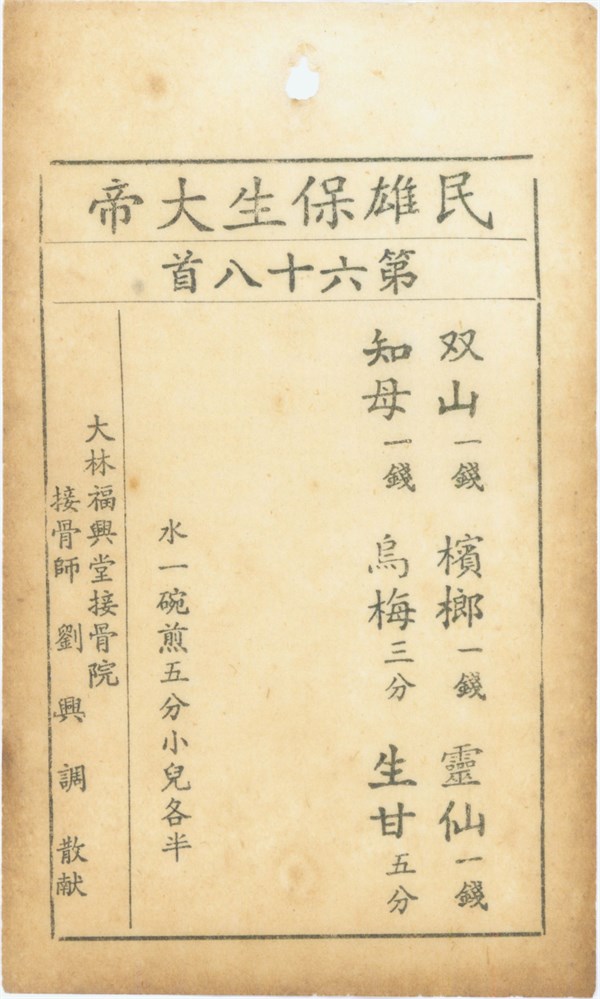 民雄保生大帝
第六十八首
双山一錢　檳榔一錢　靈仙一錢
知母一錢　烏梅三分　生甘五分
水一碗煎五分小兒各半
大林福興堂接骨院
接骨師　劉興調　散献